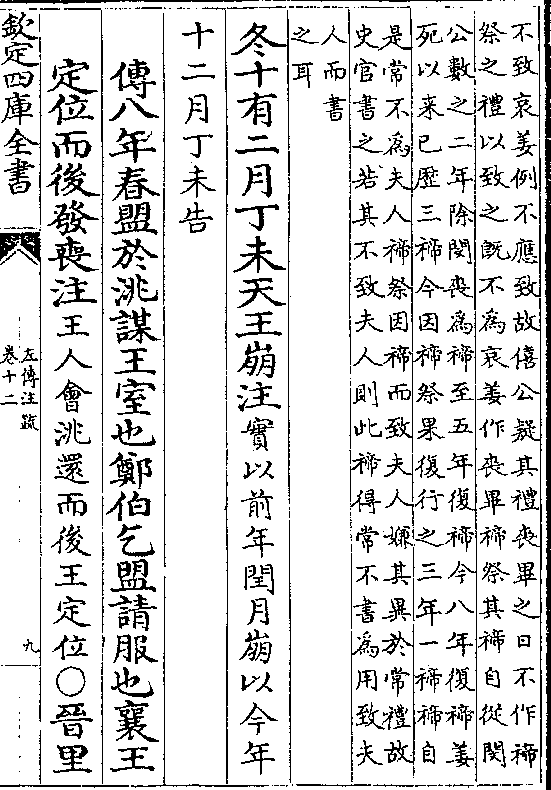 不致哀姜例不應致故僖公疑其禮喪畢之日不作禘
祭之禮以致之既不為哀姜作喪畢禘祭其禘自從閔
公數之二年除閔喪為禘至五年復禘今八年復禘姜
死以来已歷三禘今因禘祭果復行之三年一禘禘自
是常不為夫人禘祭因禘而致夫人嫌其異於常禮故
史官書之若其不致夫人則此禘得常不書為用致夫
人而書
之耳
冬十有二月丁未天王崩注實以前年閏月崩以今年
十二月丁未告
傳八年春盟於洮謀王室也鄭伯乞盟請服也襄王
定位而後發喪注王人會洮還而後王定位○晉里
欽定四庫全書
左傳注疏
卷十二
九